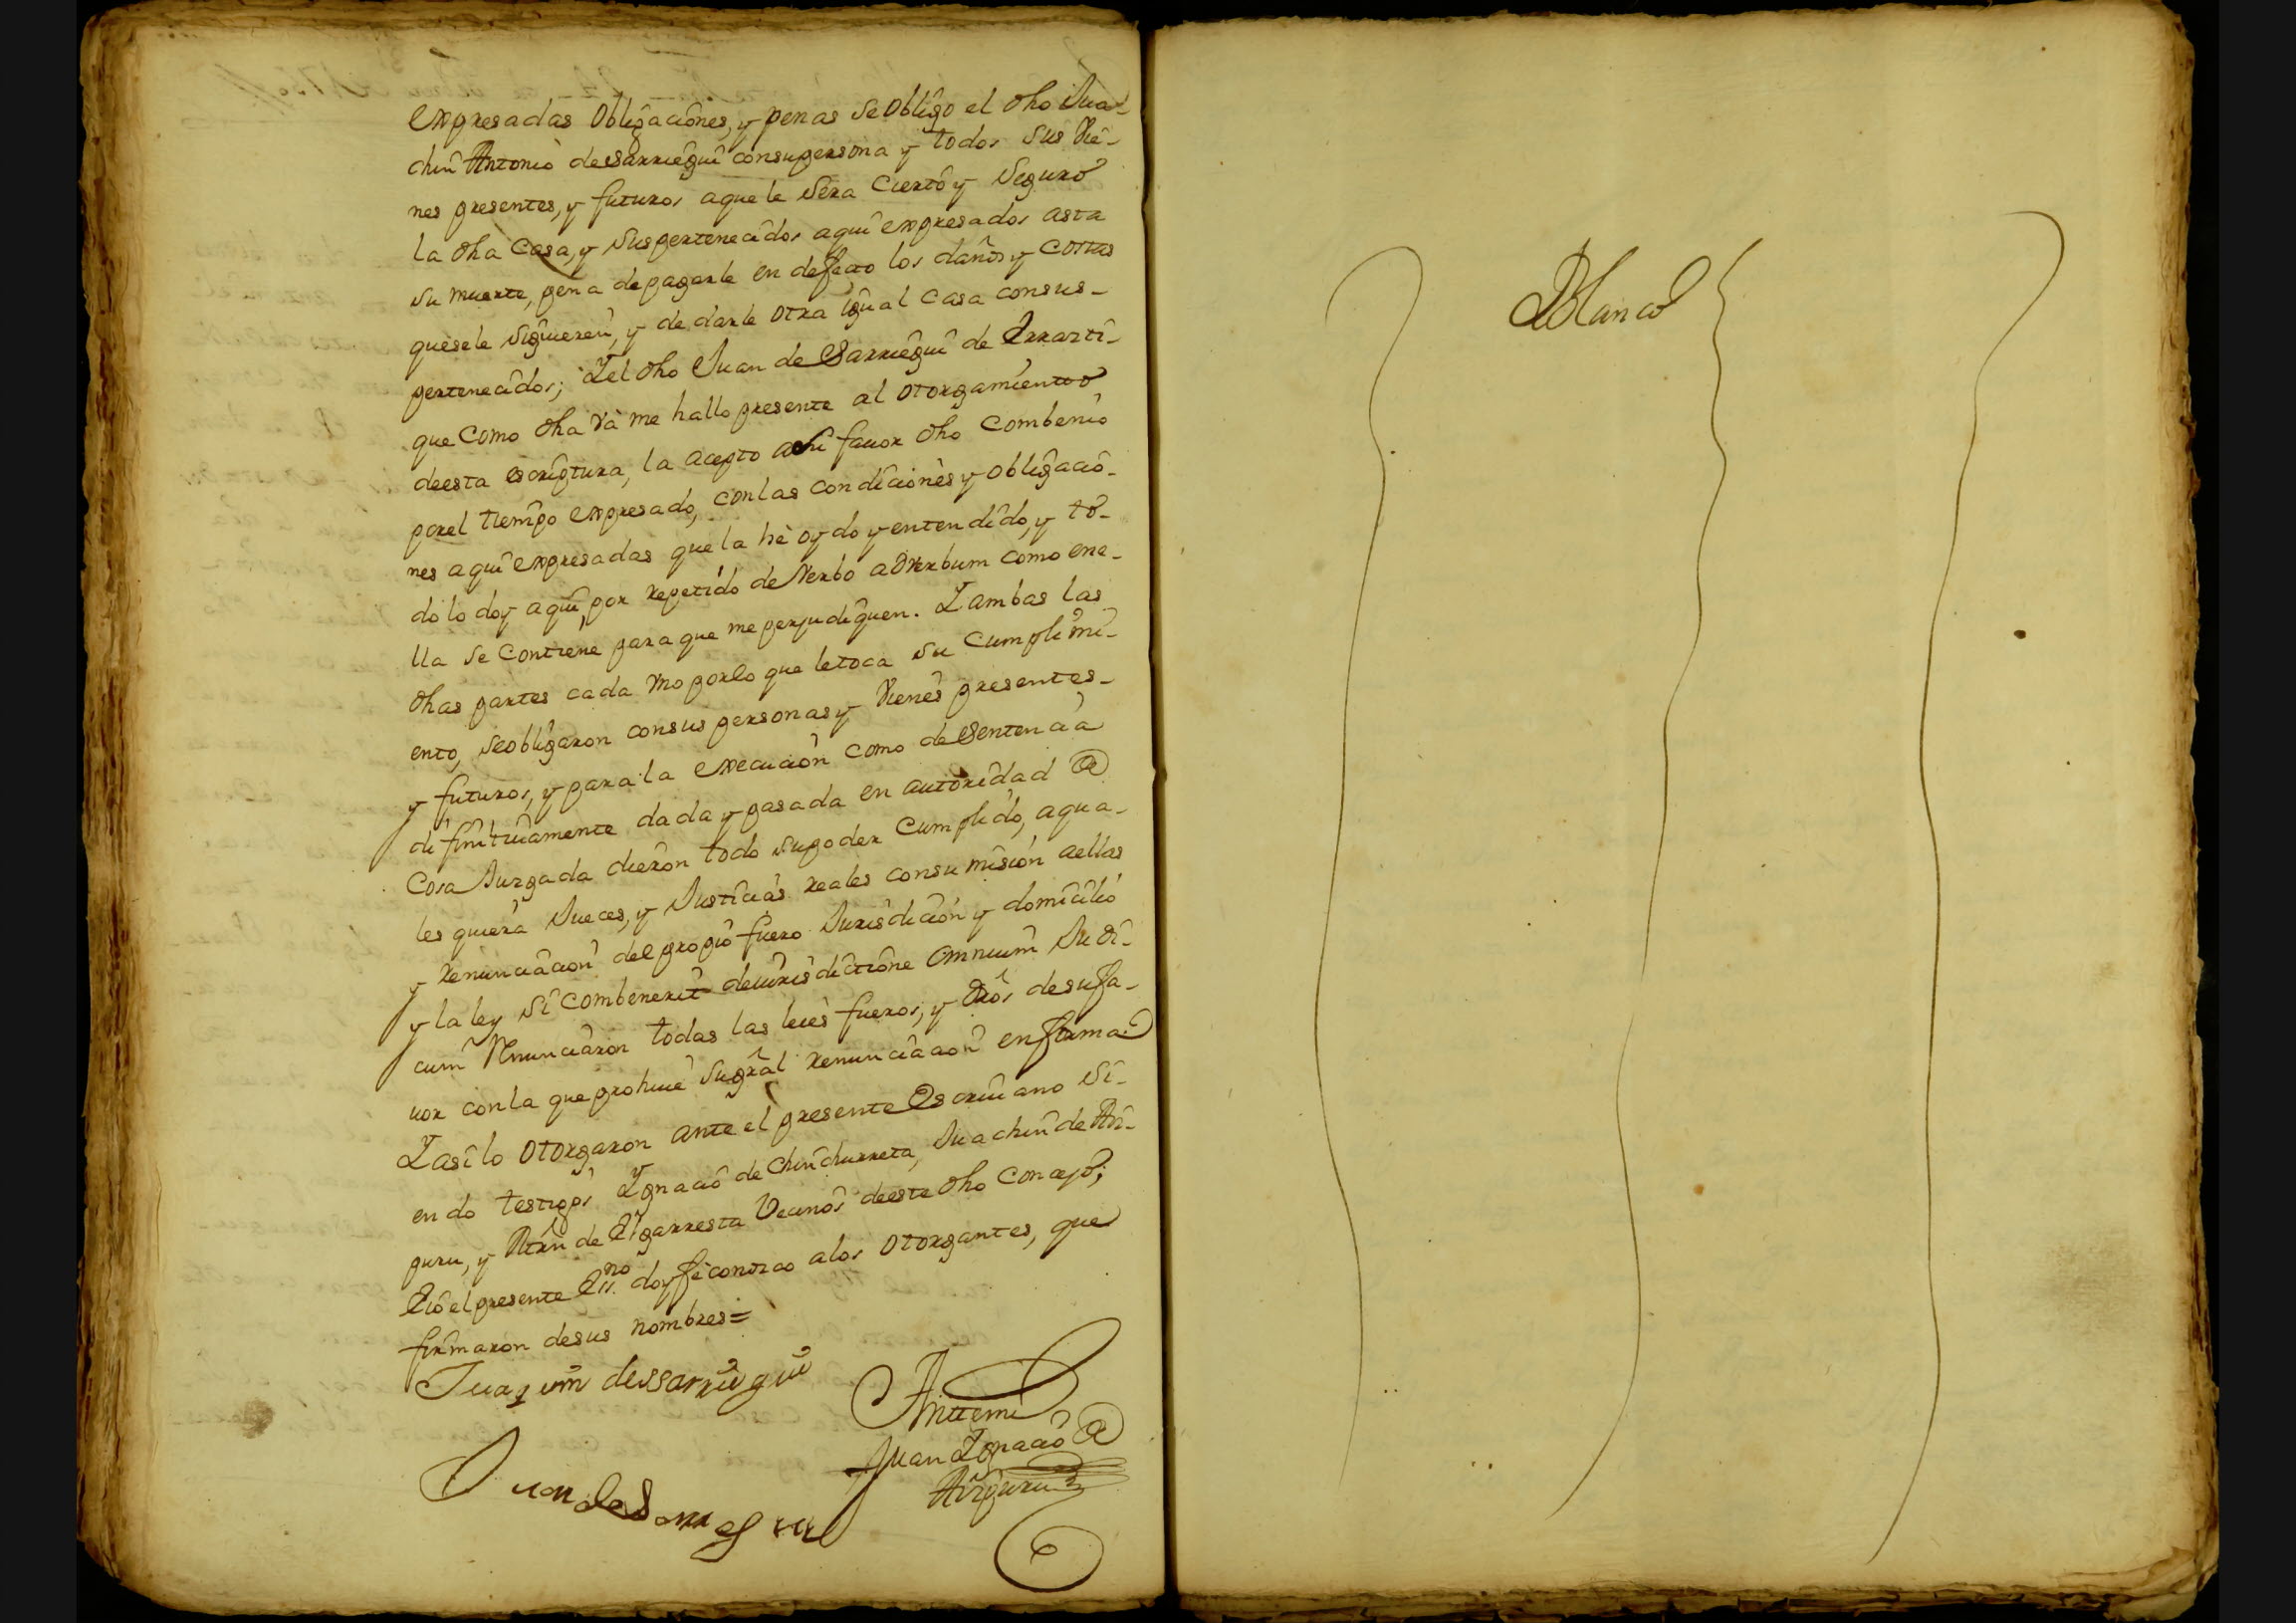 expresadas obligaciones, y penas se obligo el dho Jua-
chin Antonio de Sarriegui con su persona y todos sus Vie-
nes presentes, y futuros aque le sera cierto y seguro
la dha Casa, y sus pertenecidos aqui expresados asta
su muerte, pena de pagarle en defecto los daños y costas
que se le siguieren, y de darle otra igual casa con sus-
pertenecidos; Y el dho Juan de Sarriegui de Irrazti-
que como dha va me hallo presente al otorgamiento
de esta escriptura, la acepto a mi fauor dho Combenio
por el tiempo expresado, con las condiciones y obligacio-
nes aqui expresadas que la hè oydo y entendido, y to-
do lo doy aqui, por repetido de Verbo adverbum como ene-
lla se Contiene para que me perjudiquen. Y ambas las
dhas partes cada vno por lo que le toca su Cumplimi-
ento, se obligaron con sus personas y Vienes presentes-
y futuros, y para la execucion como de sentencia
difinitiuamente dada y pasada en autoridad @
Cosa Juzgada dieron todo su poder Cumplido, aqua-
les quiera Jueces, y Justicias reales con sumision aellas
y renunciacion del propio fuero Jurisdicion y domicilio
y la ley si combenerit de iurisdictione omnium Judi-
cum Renunciaron todas las leies fueros, y dros de su fa-
uor con la que prohiue su gral renunciacion en forma
Y asi lo otorgaron ante el presente Escriuano si-
endo testigos Ygnacio de Chinchurreta, Juachin de Air-
puru, y Mrn de Elgarresta Vecinos de este dho Concejo;
E io el presente Essno doy fè conozco a los otorgantes, que
firmaron de sus nombres=
Juaquin de Ssarriegui
Antemi
Juan Ygnacio @
Juan de Sarriegui
Airpuru
Blanco